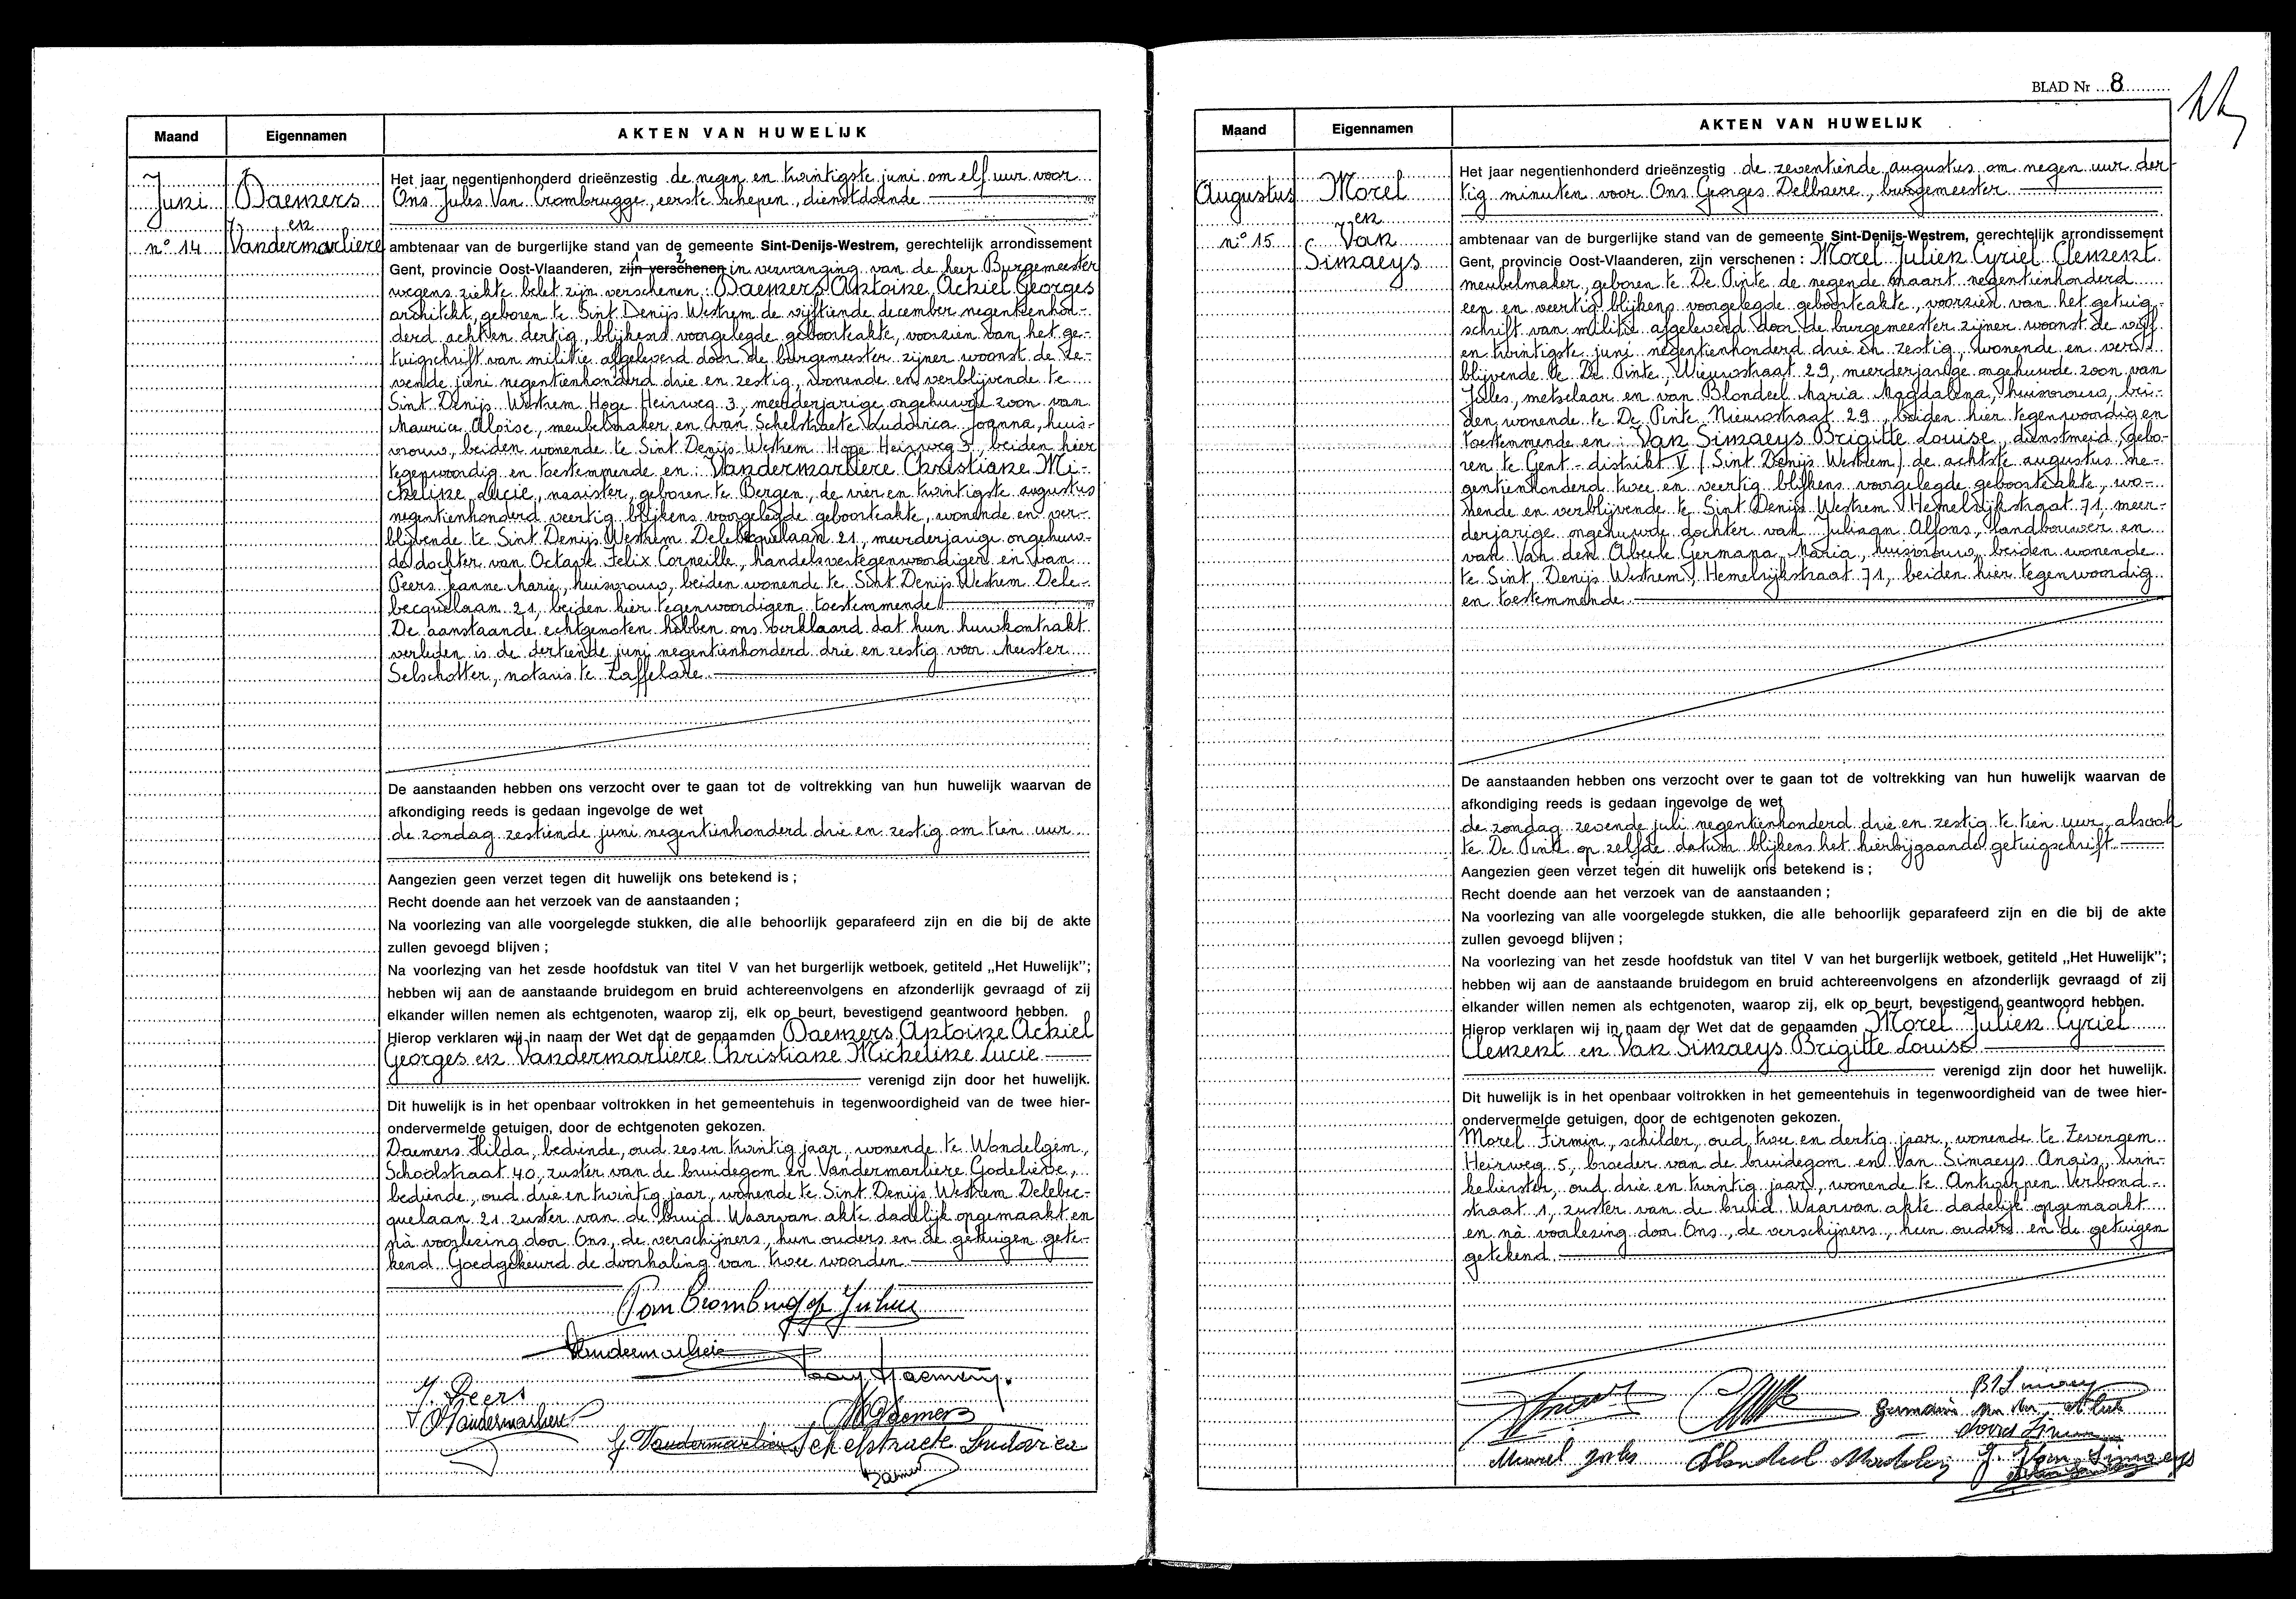 Maand Eigennamen AKTEN VAN HUWELIJK
Juni
n° 14
Daemers
en
Vandermarliere
Het jaar negentienhonderd drieënzestig de negen en twintigste juni om elf uur voor
Ons Jules Van Crombrugge, eerste schepen, dienstdoende
ambtenaar van de burgerlijke stand van de gemeente Sint-Denijs-Westrem, gerechtelijk arrondissement
Gent, provincie Oost-Vlaanderen, zijn verschenen in vervanging van de heer Burgemeester
wegens ziekte belet zijn verschenen : Daemers Antoine Achiel Georges
architekt, geboren te Sint Denijs Westrem de vijftiende december negentienhon-
derd acht en dertig, blijkens voorgelegde geboorteakte, voorzien van het ge-
tuigschrift van militie afgeleverd door de burgemeester zijner woonst de ze-
vende juni negentienhonderd drie en zestig, wonende en verblijvende te
Sint Denijs Westrem Hoge Heirweg 3, meerderjarige ongehuwde zoon van
Maurice Aloise, meubelmaker en van Schelstraete Ludovica Joanna, huis-
vrouw, beiden wonende te Sint Denijs Westrem Hoge Heirweg 3, beiden hier
tegenwoordig en toestemmende en : Vandermarliere Christiane Mi-
cheline Lucie, naaister, geboren te Bergen, de vier en twintigste augustus
negentienhonderd veertig blijkens voorgelegde geboorteakte, wonende en ver-
blijvende te Sint Denijs Westrem Delebecquelaan 21, meerderjarige ongehuw-
de dochter van Octave Felix Corneille, handelsvertegenwoordiger en van
Peers Jeanne Marie, huisvrouw, beiden wonende te Sint Denijs Westrem Dele-
becquelaan 21, beiden hier tegenwoordig en toestemmende
De aanstaande echtgenoten hebben ons verklaard dat hun huwkontrakt
verleden is de dertiende juni negentienhonderd drie en zestig voor Meester
Selschotter, notaris te Zaffelare.
De aanstaanden hebben ons verzocht over te gaan tot de voltrekking van hun huwelijk waarvan de
afkondiging reeds is gedaan ingevolge de wet
de zondag zestiende juni negentienhonderd drie en zestig om tien uur
Aangezien geen verzet tegen dit huwelijk ons betekend is ;
Recht doende aan het verzoek van de aanstaanden ;
Na voorlezing van alle voorgelegde stukken, die alle behoorlijk geparafeerd zijn en die bij de akte
zullen gevoegd blijven ;
Na voorlezing van het zesde hoofdstuk van titel V van het burgerlijk wetboek, getiteld „Het Huwelijk”;
hebben wij aan de aanstaande bruidegom en bruid achtereenvolgens en afzonderlijk gevraagd of zij
elkander willen nemen als echtgenoten, waarop zij, elk op beurt, bevestigend geantwoord hebben.
Hierop verklaren wij in naam der Wet dat de genaamden Daemers Antoine Achiel
Georges en Vandermarliere Christiane Micheline Lucie
verenigd zijn door het huwelijk.
Dit huwelijk is in het openbaar voltrokken in het gemeentehuis in tegenwoordigheid van de twee hier-
ondervermelde getuigen, door de echtgenoten gekozen.
Daemers Hilda, bediende, oud zes en twintig jaar, wonende te Wondelgem,
Schoolstraat 40, zuster van de bruidegom en Vandermarliere Godelieve,
bediende, oud drie en twintig jaar, wonende te Sint Denijs Westrem Delebec-
quelaan 21 zuster van de bruid. Waarvan akte dadelijk opgemaakt en
nà voorlezing door Ons, de verschijners, hun ouders en de getuigen gete-
kend. Goedgekeurd de doorhaling van twee woorden
Van Crombrugge Julius
Vandermarliere
J. Peers
O Vandermarliere
Daemers
G. Vandermarliere Schelstraete Ludovica
Daemers
BLAD Nr 8
Maand Eigennamen AKTEN VAN HUWELIJK
Augustus
n° 15
Morel
en
Van
Simaeys
Het jaar negentienhonderd drieënzestig de zeventiende augustus om negen uur der-
tig minuten voor Ons Georges Delbaere, burgemeester
ambtenaar van de burgerlijke stand van de gemeente Sint-Denijs-Westrem, gerechtelijk arrondissement
Gent, provincie Oost-Vlaanderen, zijn verschenen : Morel Julien Cyriel Clement
meubelmaker, geboren te De Pinte de negende maart negentienhonderd
een en veertig blijkens voorgelegde geboorteakte, voorzien van het getuig-
schrift van militie afgeleverd door de burgemeester zijner woonst de vijf
en twintigste juni negentienhonderd drie en zestig, wonende en ver-
blijvende te De Pinte, Nieuwstraat 29, meerderjarige ongehuwde zoon van
Jules, metselaar en van Blondeel Maria Magdalena, huisvrouw, bei-
den wonende te De Pinte Nieuwstraat 29, beiden hier tegenwoordig en
toestemmende en : Van Simaeys Brigitte Louise, dienstmeid, gebo-
ren te Gent - distrikt V (Sint Denijs Westrem) de achtste augustus ne-
gentienhonderd twee en veertig blijkens voorgelegde geboorteakte, wo-
nende en verblijvende te Sint Denijs Westrem Hemelrijkstraat 71, meer-
derjarige ongehuwde dochter van Juliaan Alfons, landbouwer en
van Van den Abeele Germana Maria, huisvrouw, beiden wonende
te Sint Denijs Westrem, Hemelrijkstraat 71, beiden hier tegenwoordig
en toestemmende.
De aanstaanden hebben ons verzocht over te gaan tot de voltrekking van hun huwelijk waarvan de
afkondiging reeds is gedaan ingevolge de wet
de zondag zevende juli negentienhonderd drie en zestig te tien uur, alsook
te De Pinte op zelfde datum blijkens het hierbijgaande getuigschrift
Aangezien geen verzet tegen dit huwelijk ons betekend is ;
Recht doende aan het verzoek van de aanstaanden ;
Na voorlezing van alle voorgelegde stukken, die alle behoorlijk geparafeerd zijn en die bij de akte
zullen gevoegd blijven ;
Na voorlezing van het zesde hoofdstuk van titel V van het burgerlijk wetboek, getiteld „Het Huwelijk”;
hebben wij aan de aanstaande bruidegom en bruid achtereenvolgens en afzonderlijk gevraagd of zij
elkander willen nemen als echtgenoten, waarop zij, elk op beurt, bevestigend geantwoord hebben.
Hierop verklaren wij in naam der Wet dat de genaamden Morel Julien Cyriel
Clement en Van Simaeys Brigitte Louise
verenigd zijn door het huwelijk.
Dit huwelijk is in het openbaar voltrokken in het gemeentehuis in tegenwoordigheid van de twee hier-
ondervermelde getuigen, door de echtgenoten gekozen.
Morel Firmin, schilder, oud twee en dertig jaar, wonende te Zevergem
Heirweg 5, broeder van de bruidegom en Van Simaeys Angis, win-
kelierster, oud drie en twintig jaar, wonende te Antwerpen Verbond-
straat 1, zuster van de bruid. Waarvan akte dadelijk opgemaakt
en nà voorlezing door Ons, de verschijners, hun ouders en de getuigen
getekend.
Morel Jules Blondeel J. Van Simaeys